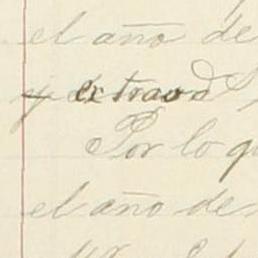 el año de
y extraord
Por lo q
el año de